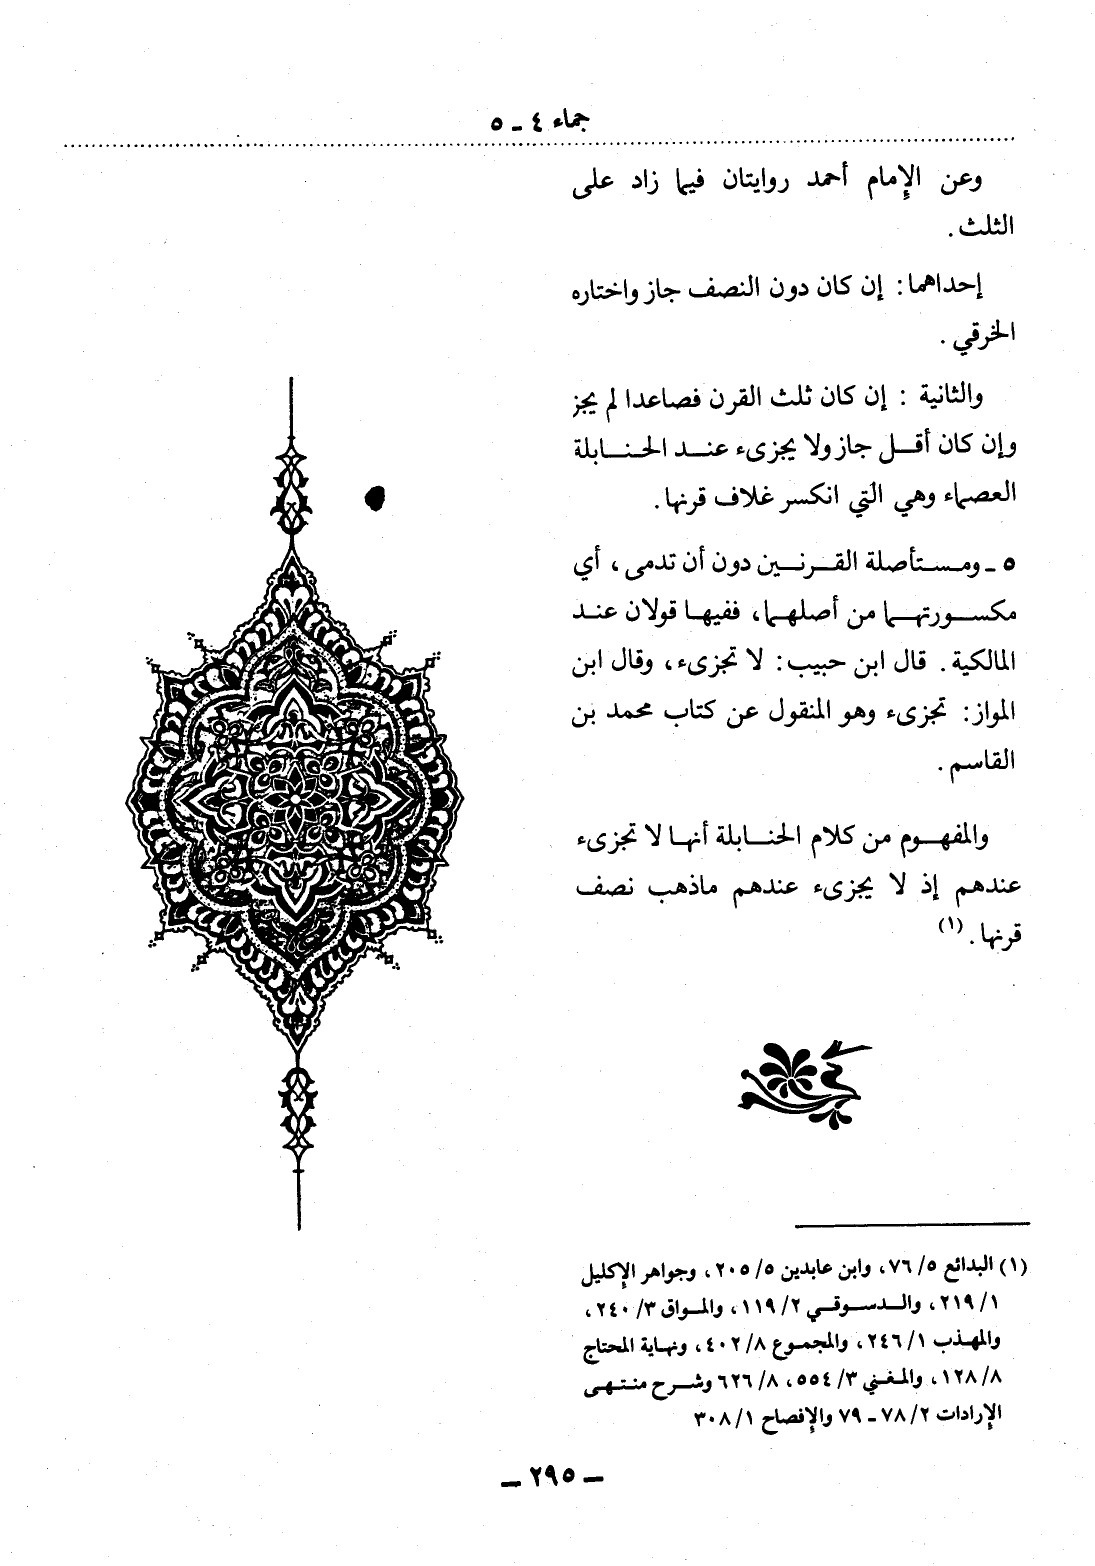 جماء ٤ ـ ٥
وعن الإمام أحمد روايتان فيما زاد على
الثلث .
إحداهما : إن كان دون النصف جاز واختاره
الخرقي .
والثانية : إن كان ثلث القرن فصاعدا لم يجز
وإن كان أقل جاز ولا يجزىء عند الحنابلة
العصماء وهي التي انكسر غلاف قرنها .
٥ ـ ومستأصلة القرنين دون أن تدمى ، أي
مكسورتهما من أصلهما ، ففيها قولان عند
المالكية . قال ابن حبيب : لا تجزىء ، وقال ابن
المواز : تجزىء وهو المنقول عن كتاب محمد بن
القاسم .
والمفهوم من كلام الحنابلة أنها لا تجزىء
عندهم إذ لا يجزىء عندهم ماذهب نصف
قرنها . (١)
(١) البدائع ٥/ ٧٦ ، وابن عابدين ٥/ ٢٠٥ ، وجواهر الإكليل
١/ ٢١٩ ، والدسوقي ٢/ ١١٩ ، والمواق ٣/ ٢٤٠ ،
والمهذب ١/ ٢٤٦ ، والمجموع ٨/ ٤٠٢ ، ونهاية المحتاج
٨/ ١٢٨ ، والمغني ٣/ ٥٥٤ ، ٨/ ٦٢٦ وشرح منتهى
الإرادات ٢/ ٧٨ ـ ٧٩ والإفصاح ١/ ٣٠٨
ـ ٢٩٥ ـ